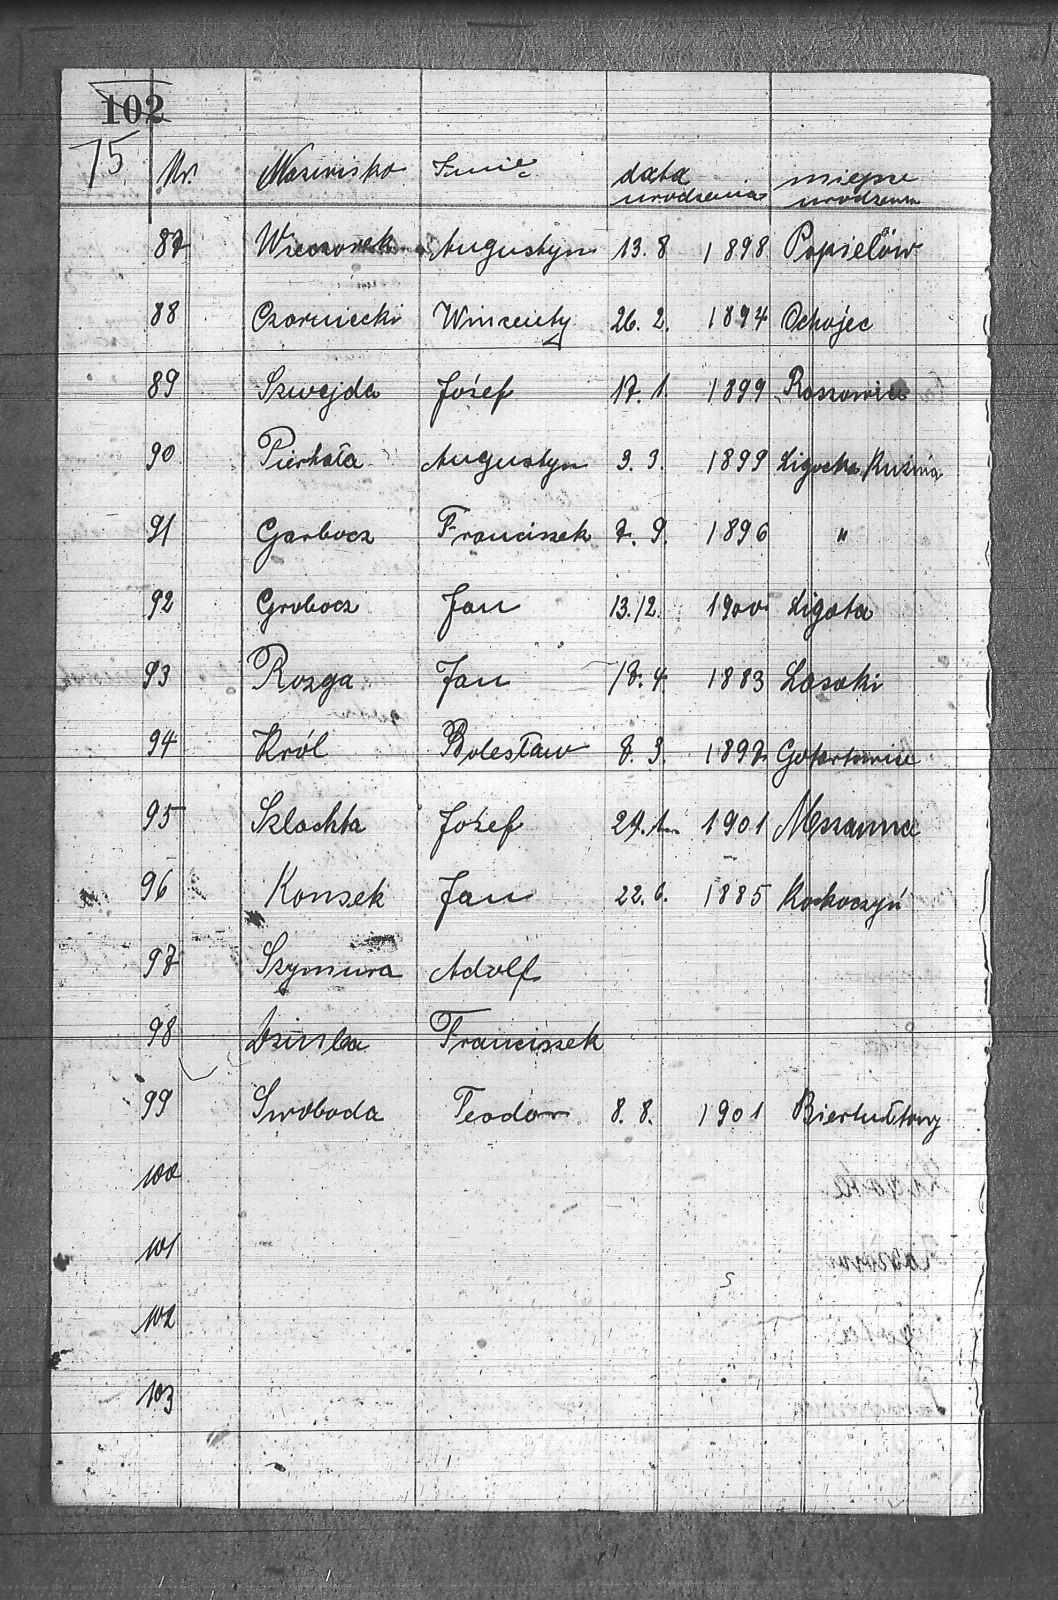 102
75
Nr. Nazwisko Imię data urodzenia miejsce urodzenia
87 Wieczorek Augustyn 13.8 1898 Popielów
88 Czarniecki Winzenty 26.2. 1894 Ochojec
89 Szwejda Józef 17.1 1899 Roszowice
90 Pierhała Augustyn 3.3. 1899 Ligocka Kuźnia
91 Garbocz Franciszek 7.9. 1896 "
92 Grobocz Jan 13.12. 1900 Ligota
93 Rozga Jan 18.4 1883 Lasoki
94 Król Bolesław 7.3. 1897 Gotartowice
95 Szlachta Józef 24.1. 1901 Mszanna
96 Konsek Jan 22.6. 1885 Kokoczyń
97 Szymura Adolf
98 Franciszek
99 Swoboda Teodor 8.8. 1901 Biertułtowy
100
101
102
103